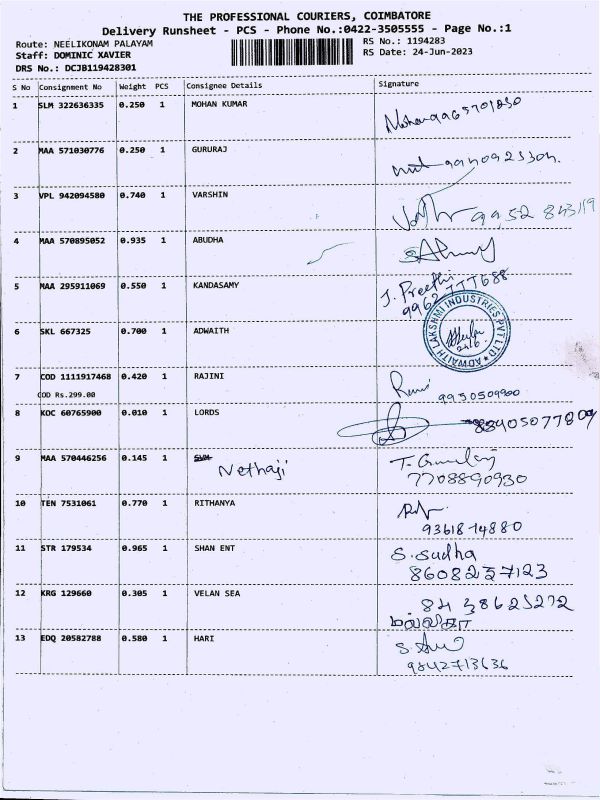 THE PROFESSIONAL COURIERS, COIMBATORE
Delivery Runsheet - PCS - Phone No.:0422-3505555 - Page No.:1
Route: NEELIKONAM PALAYAM RS No.: 1194283
Staff: DOMINIC XAVIER RS Date: 24-Jun-2023
DRS No.: DCJB119428301
S No Consignment No Weight PCS Consignee Details Signature
1 SLM 322636335 0.250 1 MOHAN KUMAR
2 MAA 571030776 0.250 1 GURURAJ
3 VPL 942094580 0.740 1 VARSHIN
4 MAA 570895052 0.935 1 ABUDHA
5 MAA 295911069 0.550 1 KANDASAMY J. Preethi
9962777688
6 SKL 667325 0.700 1 ADWAITH ADWAITH LAKSHMI INDUSTRIES PVT LTD
7 COD 1111917468 0.420 1 RAJINI
COD Rs.299.00 9930509900
8 KOC 60765900 0.010 1 LORDS
9 MAA 570446256 0.145 1 Nethaji
7708890930
10 TEN 7531061 0.770 1 RITHANYA
11 STR 179534 0.965 1 SHAN ENT S. Sudha
8608257123
12 KRG 129660 0.305 1 VELAN SEA 8438625272
மல்லிகா
13 EDQ 20582788 0.580 1 HARI
9842713636